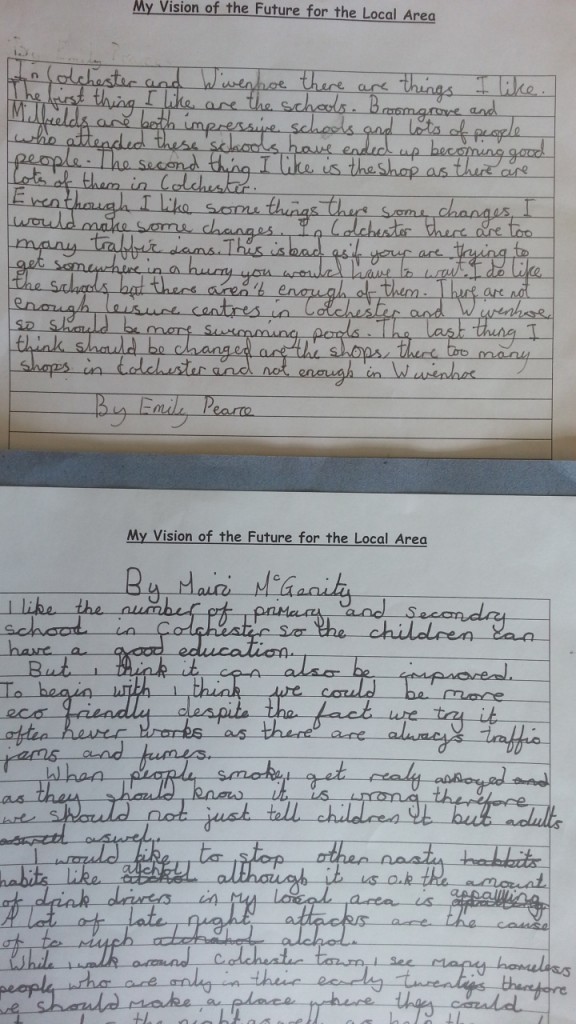 My Vision of the Future for the Local Area
In Colchester and Wivenhoe there are things I like.
The first thing I like are the schools. Broomgrove and
Millfields are both impressive schools and lots of people
who attended these schools have ended up becoming good
people. The second thing I like is the shop as there are
lots of them in Colchester.
Eventhough I like some things there some changes, I
would make some changes. In Colchester there are too
many traffic jams. This is bad as if your are trying to
get somewhere in a hurry you would have to wait. I do like
the schools but there aren't enough of them. There are not
enough leisure centres in Colchester and Wivenhoe
so should be more swimming pools. The last thing I
think should be changed are the shops, there too many
shops in Colchester and not enough in Wivenhoe
By Emily Pearce
My Vision of the Future for the Local Area
By Mairi McGarity
I like the number of primary and secondry
school in Colchester so the children can
have a good education.
But i think it can also be improved.
To begin with i think we could be more
eco friendly despite the fact we try it
often never works as there are always traffic
jams and fumes.
When people smoke i get realy annoyed and
as they should know it is wrong therefore
we should not just tell children it but adults
aswell.
I would like to stop other nasty habbits
habits like alchol although it is o.k the amount
of drink drivers in my local area is appalling
A lot of late night attacks are the cause
of to much alchol.
While i walk around Colchester town i see many homeless
people who are only in their early twenties therefore
we should make a place where they could
the night as well as